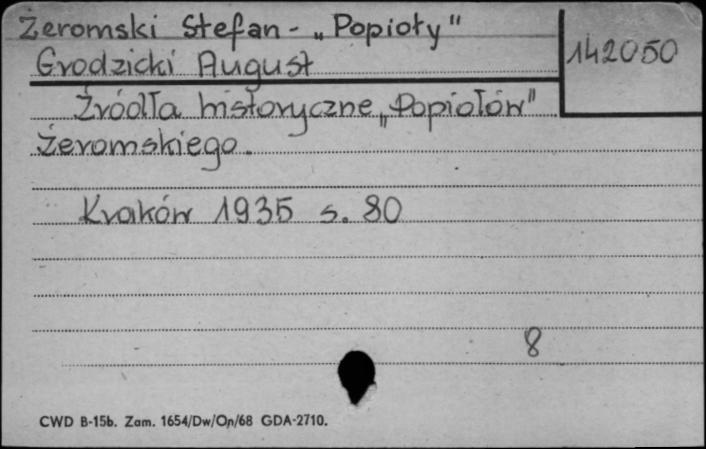 Żeromski Stefan - „Popioły"
Grodzicki August
142050
Źródła historyczne „Popiołów"
Żeromskiego.
Kraków 1935 s. 80
8
CWD B-15b. Zam. 1654/Dw/Op/68 GDA-2710.